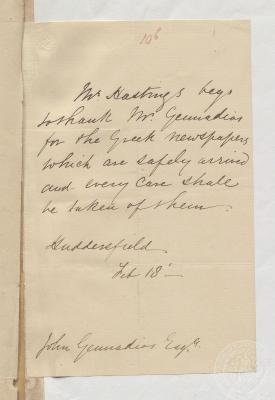 106
Mr Hastings begs
to thank Mr. Gennadios
for the Greek newspapers
which are safely arrived
and every care shall
be taken of them.
Huddersfield
Feb 18
John Gennadios Esqr.